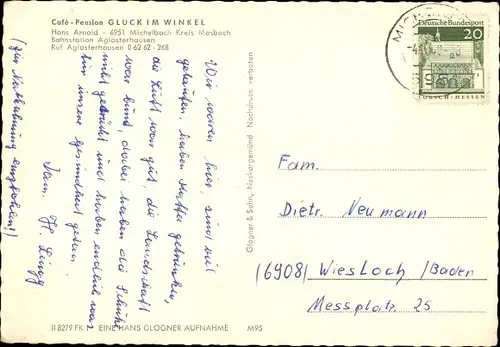 Café - Pension GLÜCK IM WINKEL
Hans Arnold - 6951 Michelbach Kreis Mosbach
Bahnstation Aglasterhausen
Ruf Aglasterhausen 0 62 62 - 268
Wir waren hier, sind viel
gelaufen, haben Kaffee getrunken,
die Luft war gut, die Landschaft
war bunt, dabei haben die Schuhe
nicht gedrückt und haben endlich was
für unsere Gesundheit getan.
Fam. H. Lingg
(Zur Nachahmung empfohlen!)
Glogner & Sohn, Neckargemünd Nachdruck verboten
Deutsche Bundespost
20
LORSCH/HESSEN
Fam.
Dietr. Neumann
(6908) Wiesloch /Baden
Messplatz 25
II 8279 FK EINE HANS GLOGNER AUFNAHME M95